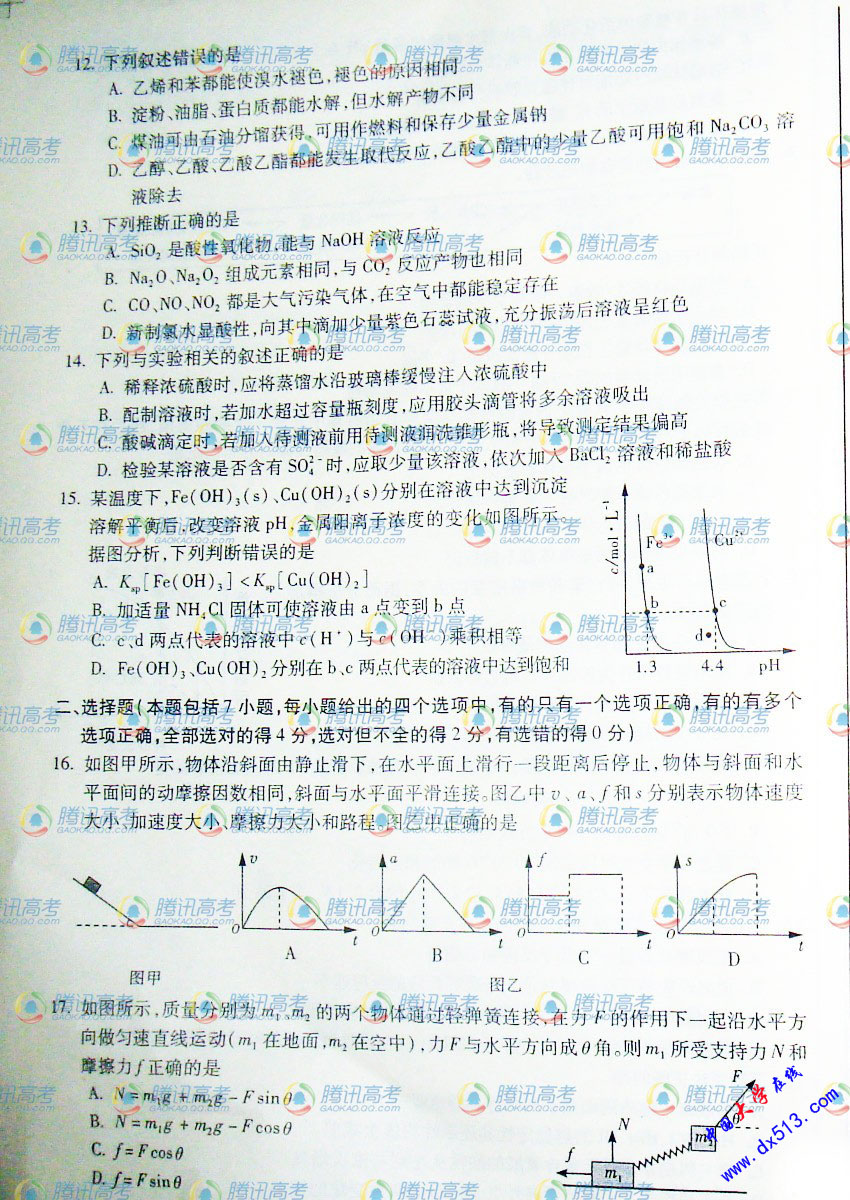 12. 下列叙述错误的是
A. 乙烯和苯都能使溴水褪色,褪色的原因相同
B. 淀粉、油脂、蛋白质都能水解,但水解产物不同
C. 煤油可由石油分馏获得,可用作燃料和保存少量金属钠
D. 乙醇、乙酸、乙酸乙酯都能发生取代反应,乙酸乙酯中的少量乙酸可用饱和 Na₂CO₃ 溶
液除去
13. 下列推断正确的是
A. SiO₂ 是酸性氧化物,能与 NaOH 溶液反应
B. Na₂O、Na₂O₂ 组成元素相同,与 CO₂ 反应产物也相同
C. CO、NO、NO₂ 都是大气污染气体,在空气中都能稳定存在
D. 新制氯水显酸性,向其中滴加少量紫色石蕊试液,充分振荡后溶液呈红色
14. 下列与实验相关的叙述正确的是
A. 稀释浓硫酸时,应将蒸馏水沿玻璃棒缓慢注入浓硫酸中
B. 配制溶液时,若加水超过容量瓶刻度,应用胶头滴管将多余溶液吸出
C. 酸碱滴定时,若加入待测液前用待测液润洗锥形瓶,将导致测定结果偏高
D. 检验某溶液是否含有 SO₄²⁻ 时,应取少量该溶液,依次加入 BaCl₂ 溶液和稀盐酸
15. 某温度下,Fe(OH)₃(s)、Cu(OH)₂(s)分别在溶液中达到沉淀
溶解平衡后,改变溶液 pH,金属阳离子浓度的变化如图所示。
据图分析,下列判断错误的是
A. Ksp[Fe(OH)₃]<Ksp[Cu(OH)₂]
B. 加适量 NH₄Cl 固体可使溶液由 a 点变到 b 点
C. c、d 两点代表的溶液中 c(H⁺)与 c(OH⁻)乘积相等
D. Fe(OH)₃、Cu(OH)₂分别在 b、c 两点代表的溶液中达到饱和
c/mol·L⁻¹
Fe³⁺ Cu²⁺
a
b c
d
1.3 4.4 pH
二、选择题(本题包括 7 小题,每小题给出的四个选项中,有的只有一个选项正确,有的有多个
选项正确,全部选对的得 4 分,选对但不全的得 2 分,有选错的得 0 分)
16. 如图甲所示,物体沿斜面由静止滑下,在水平面上滑行一段距离后停止,物体与斜面和水
平面间的动摩擦因数相同,斜面与水平面平滑连接。图乙中 v、a、f 和 s 分别表示物体速度
大小、加速度大小、摩擦力大小和路程。图乙中正确的是
v a f s
O t O t O t O t
A B C D
图甲 图乙
17. 如图所示,质量分别为 m₁、m₂ 的两个物体通过轻弹簧连接,在力 F 的作用下一起沿水平方
向做匀速直线运动(m₁ 在地面,m₂ 在空中),力 F 与水平方向成 θ 角。则 m₁ 所受支持力 N 和
摩擦力 f 正确的是
A. N=m₁g+m₂g-Fsinθ
B. N=m₁g+m₂g-Fcosθ
C. f=Fcosθ
D. f=Fsinθ
F
θ
m₂
N
f
m₁
中国大学在线
www.dx513.com
腾讯高考
GAOKAO.QQ.COM